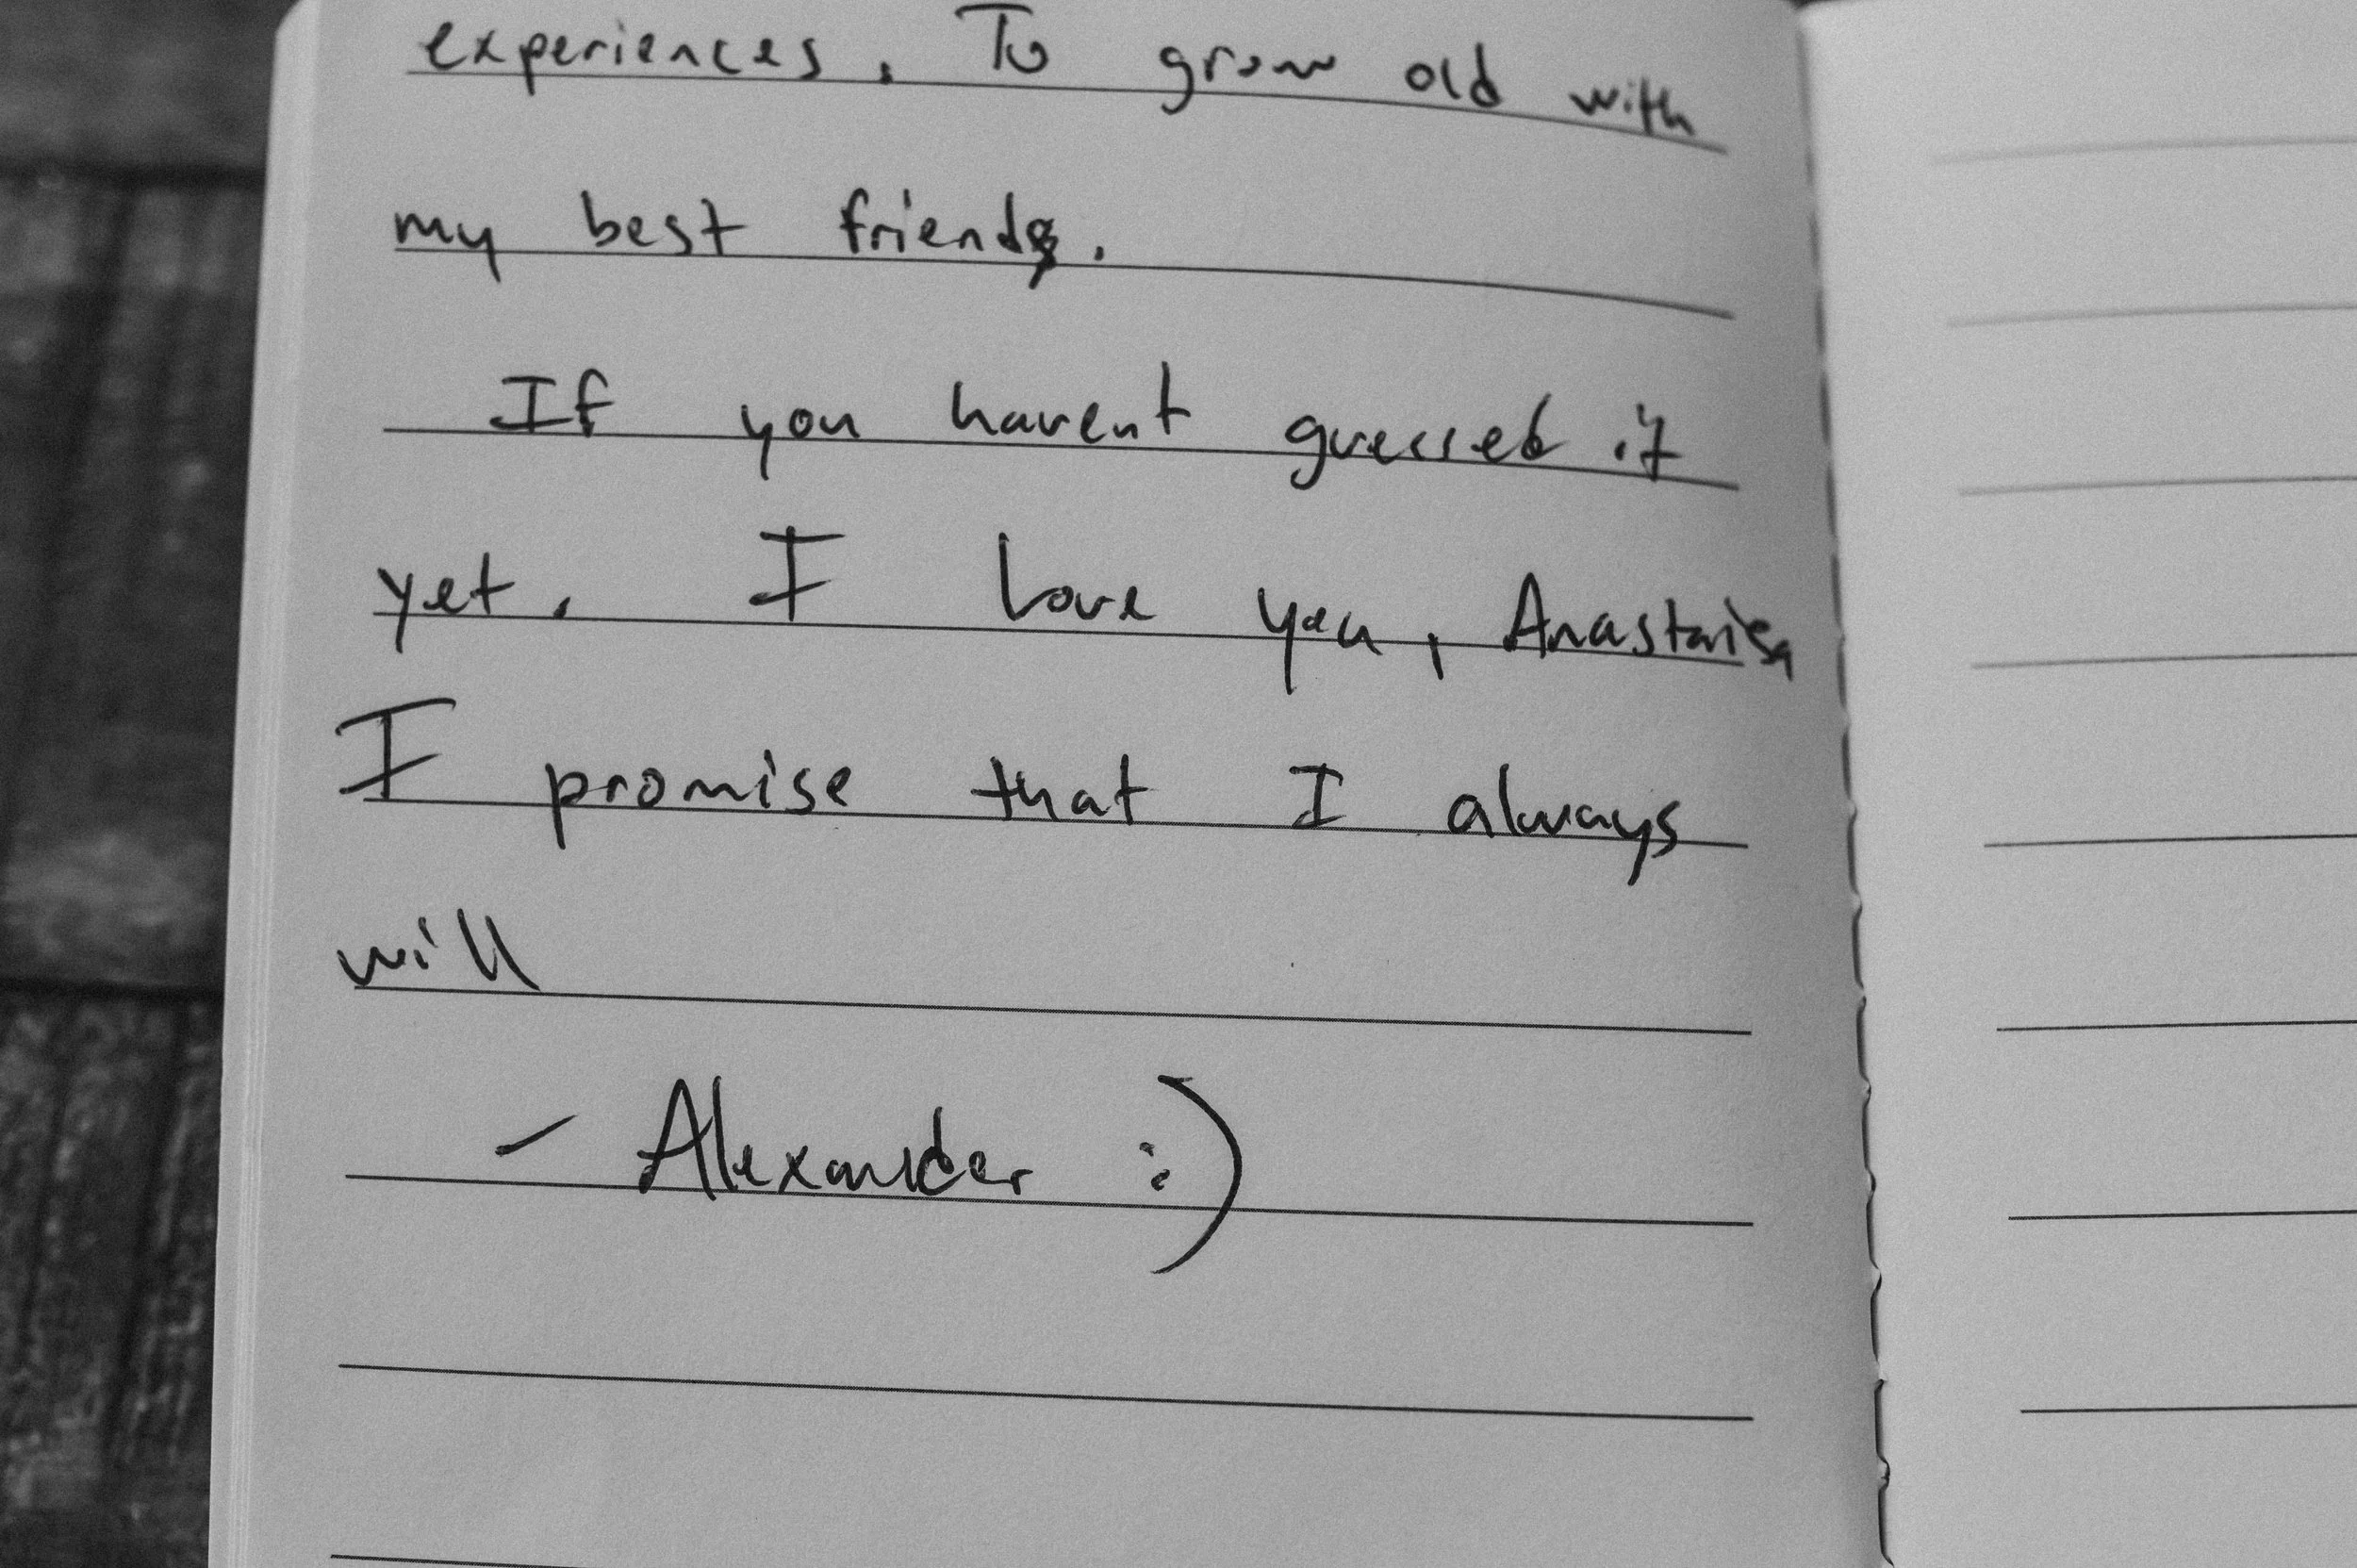 experiences. To grow old with
my best friend.
If you havent guessed it
yet. I love you, Anastasia
I promise that I always
will
- Alexander :)